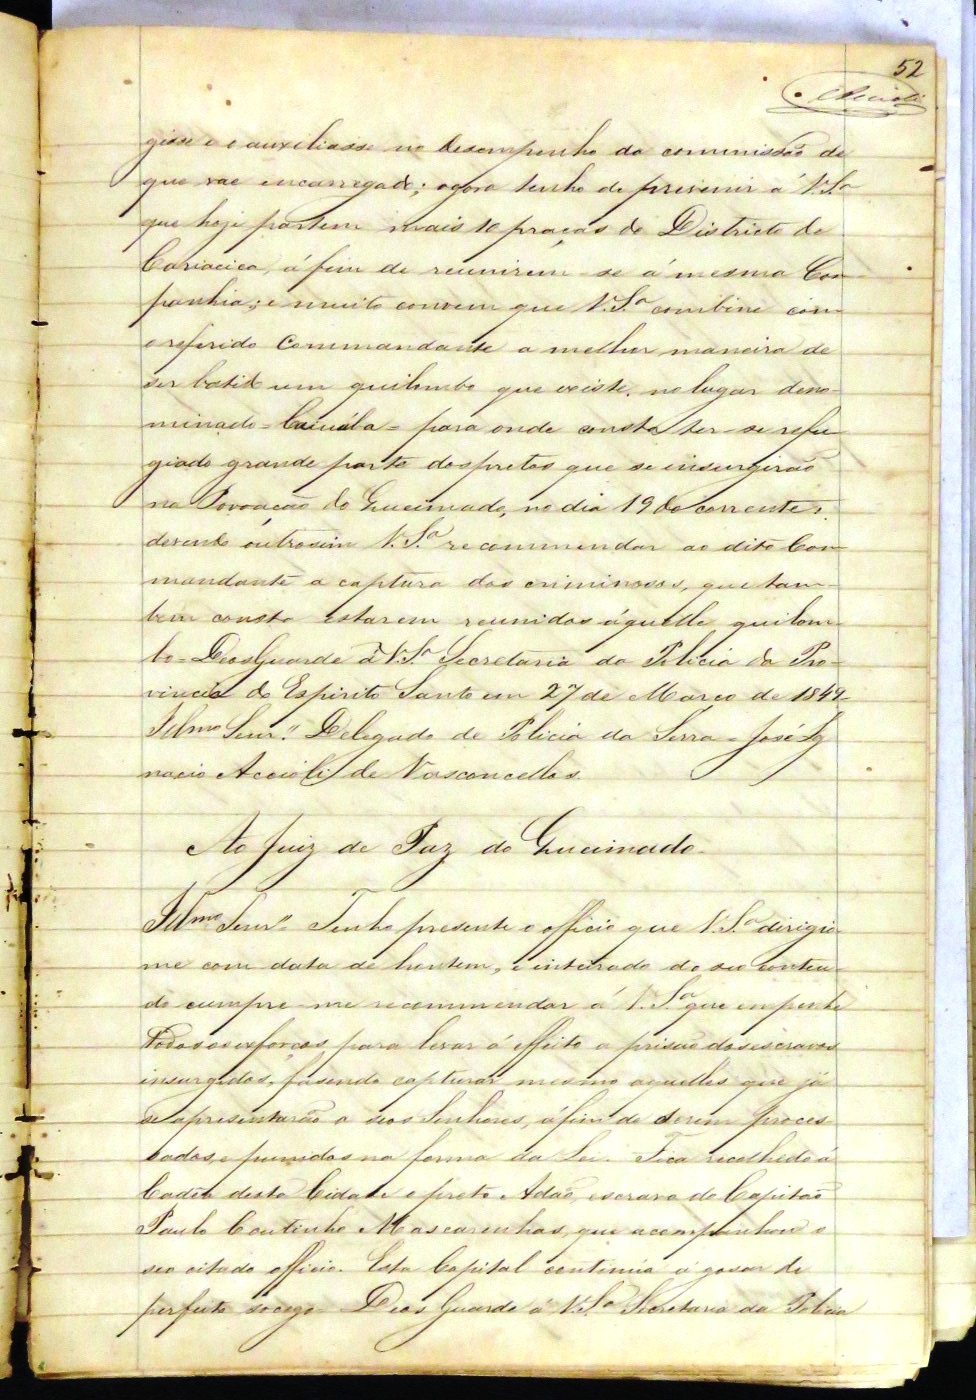 52
Accioli
gisse e o auxiliasse no desempenho da commissão de
que vae encarregado; agora tenho de prevenir á V.Sª
que hoje partem mais 10 praças do Districto de
Cariacica, á fim de reunirem-se á mesma Com-
panhia; e muito convem que V.Sª combine com
o referido Commandante a melhor maneira de
ser batido um quilombo que existe, no lugar deno-
minado = = para onde consta ter-se refu-
giado grande parte dos pretos que se insurgirão
na Povoação do Queimado, no dia 19 do corrente;
devendo outrosim V.Sª recommendar ao dito Com-
mandante a captura dos criminosos, que tam-
bem consta estarem reunidos áquelle quilom-
bo = Deos Guarde á V.Sª Secretaria da Policia da Pro-
vincia do Espirito Santo em 27 de Março de 1849 -
Illmo Senr. Delegado de Policia da Serra = José Ig
nacio Accioli de Vasconcellos.
Ao Juiz de Paz do Queimado.
Illmo Senr = Tenho presente o officio que V.Sª dirigio-
me com data de hontem, e inteirado do seo conteu-
do cumpre-me recommendar á V.Sª que empenhe
todos os esforços para levar á effeito a prisão dos escravos
insurgidos, fasendo capturar mesmo aquelles que já
se apresentarão a seos Senhores, áfim de serem proces-
sados, e punidos na forma da Lei. Fica recolhido á
Cadêa desta Cidade o preto Adão, escravo do Capitão
Paulo Coutinho Mascarenhas, que acompanhou o
seo citado officio. Esta Capital continúa á gosar de
perfeito socego = Deos Guarde á V.Sª Secretaria da Policia